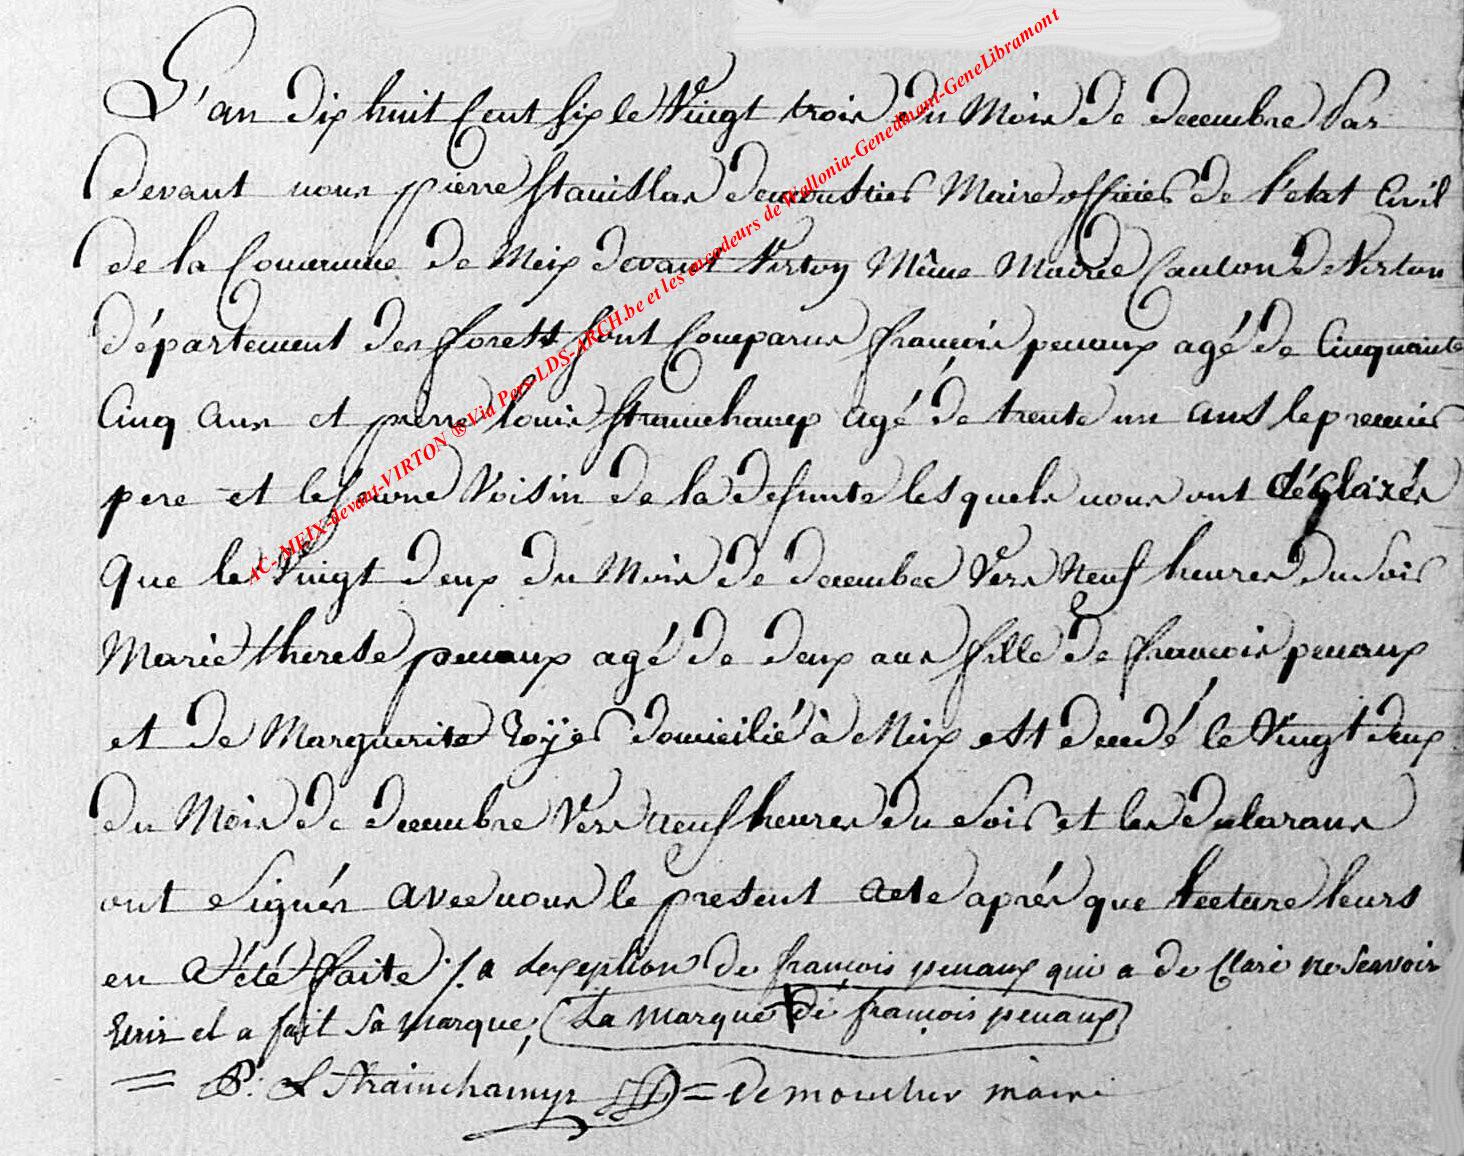 L'an dix huit Cent six le Vingt trois du Mois de decembre Par
devant nous pierre stanislas demoustier Maire officier de l'etat Civil
de la Commune de Meix devant Virton Même Mairie Canton de Virton
département des forests sont Comparus françois penaux agé de Cinquante
Cinq ans et pierre louis strainchamp agé de trente un ans le premier
pere et le second Voisin de la defunte lesquels nous ont déClarés
que le Vingt deux du Mois de decembre Vers neuf heures du soir
Marie therese penaux agé de deux ans fille de françois penaux
et de Marguerite domicilié à Meix est decedé le Vingt deux
du Mois de decembre Vers neuf heures du soir et les declarans
ont signés avec nous le present acte aprés que lecture leurs
en a été faite ./. a lexeption de françois penaux qui a de Claré ne scavoir
Ecrir et a fait sa marque; La marque de françois penaux
= P: L Strainchamps = demoustier maire
AC-MEIX-devant-VIRTON ®Via Pers-LDS-ARCH.be et les encodeurs de Wallonia-Genedinant-GeneLibramont